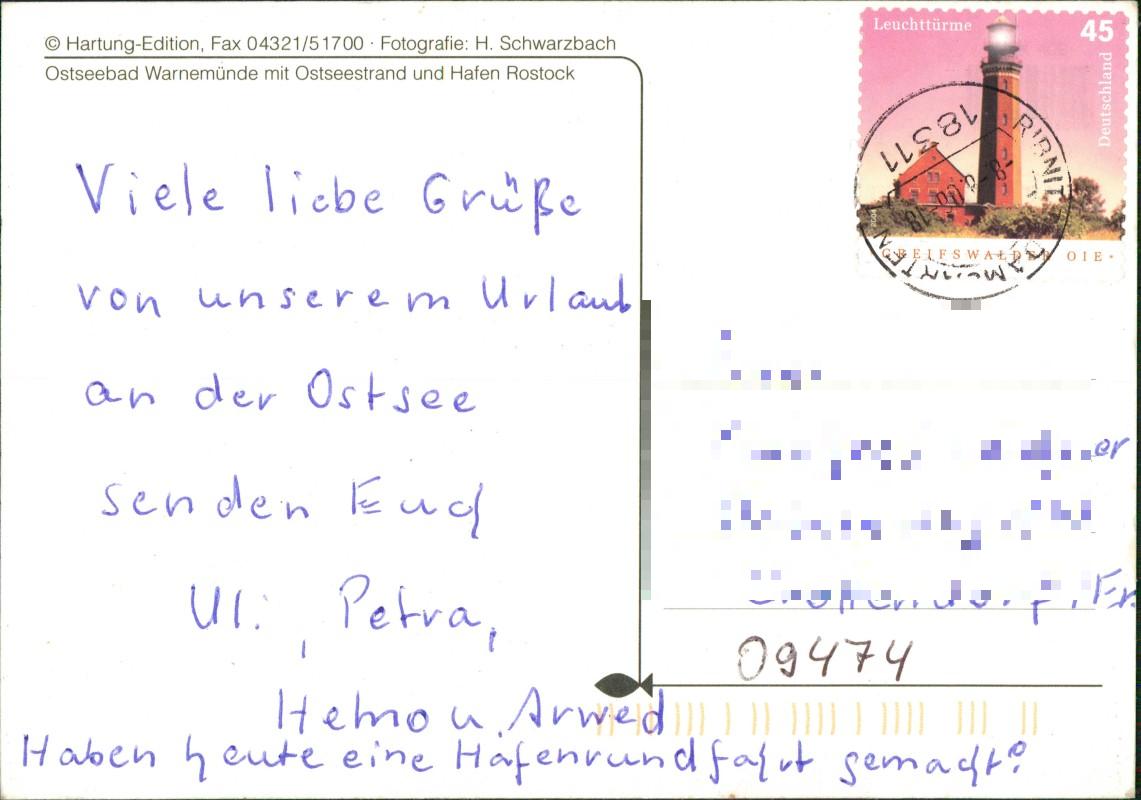 © Hartung-Edition, Fax 04321/51700 · Fotografie: H. Schwarzbach
Ostseebad Warnemünde mit Ostseestrand und Hafen Rostock
Leuchttürme
45
Deutschland
18311
GREIFSWALDER OIE
Viele liebe Grüße
von unserem Urlaub
an der Ostsee
senden Euch
Uli, Petra,
u. Arwed
Haben heute eine Hafenrundfahrt gemacht!
er
09474